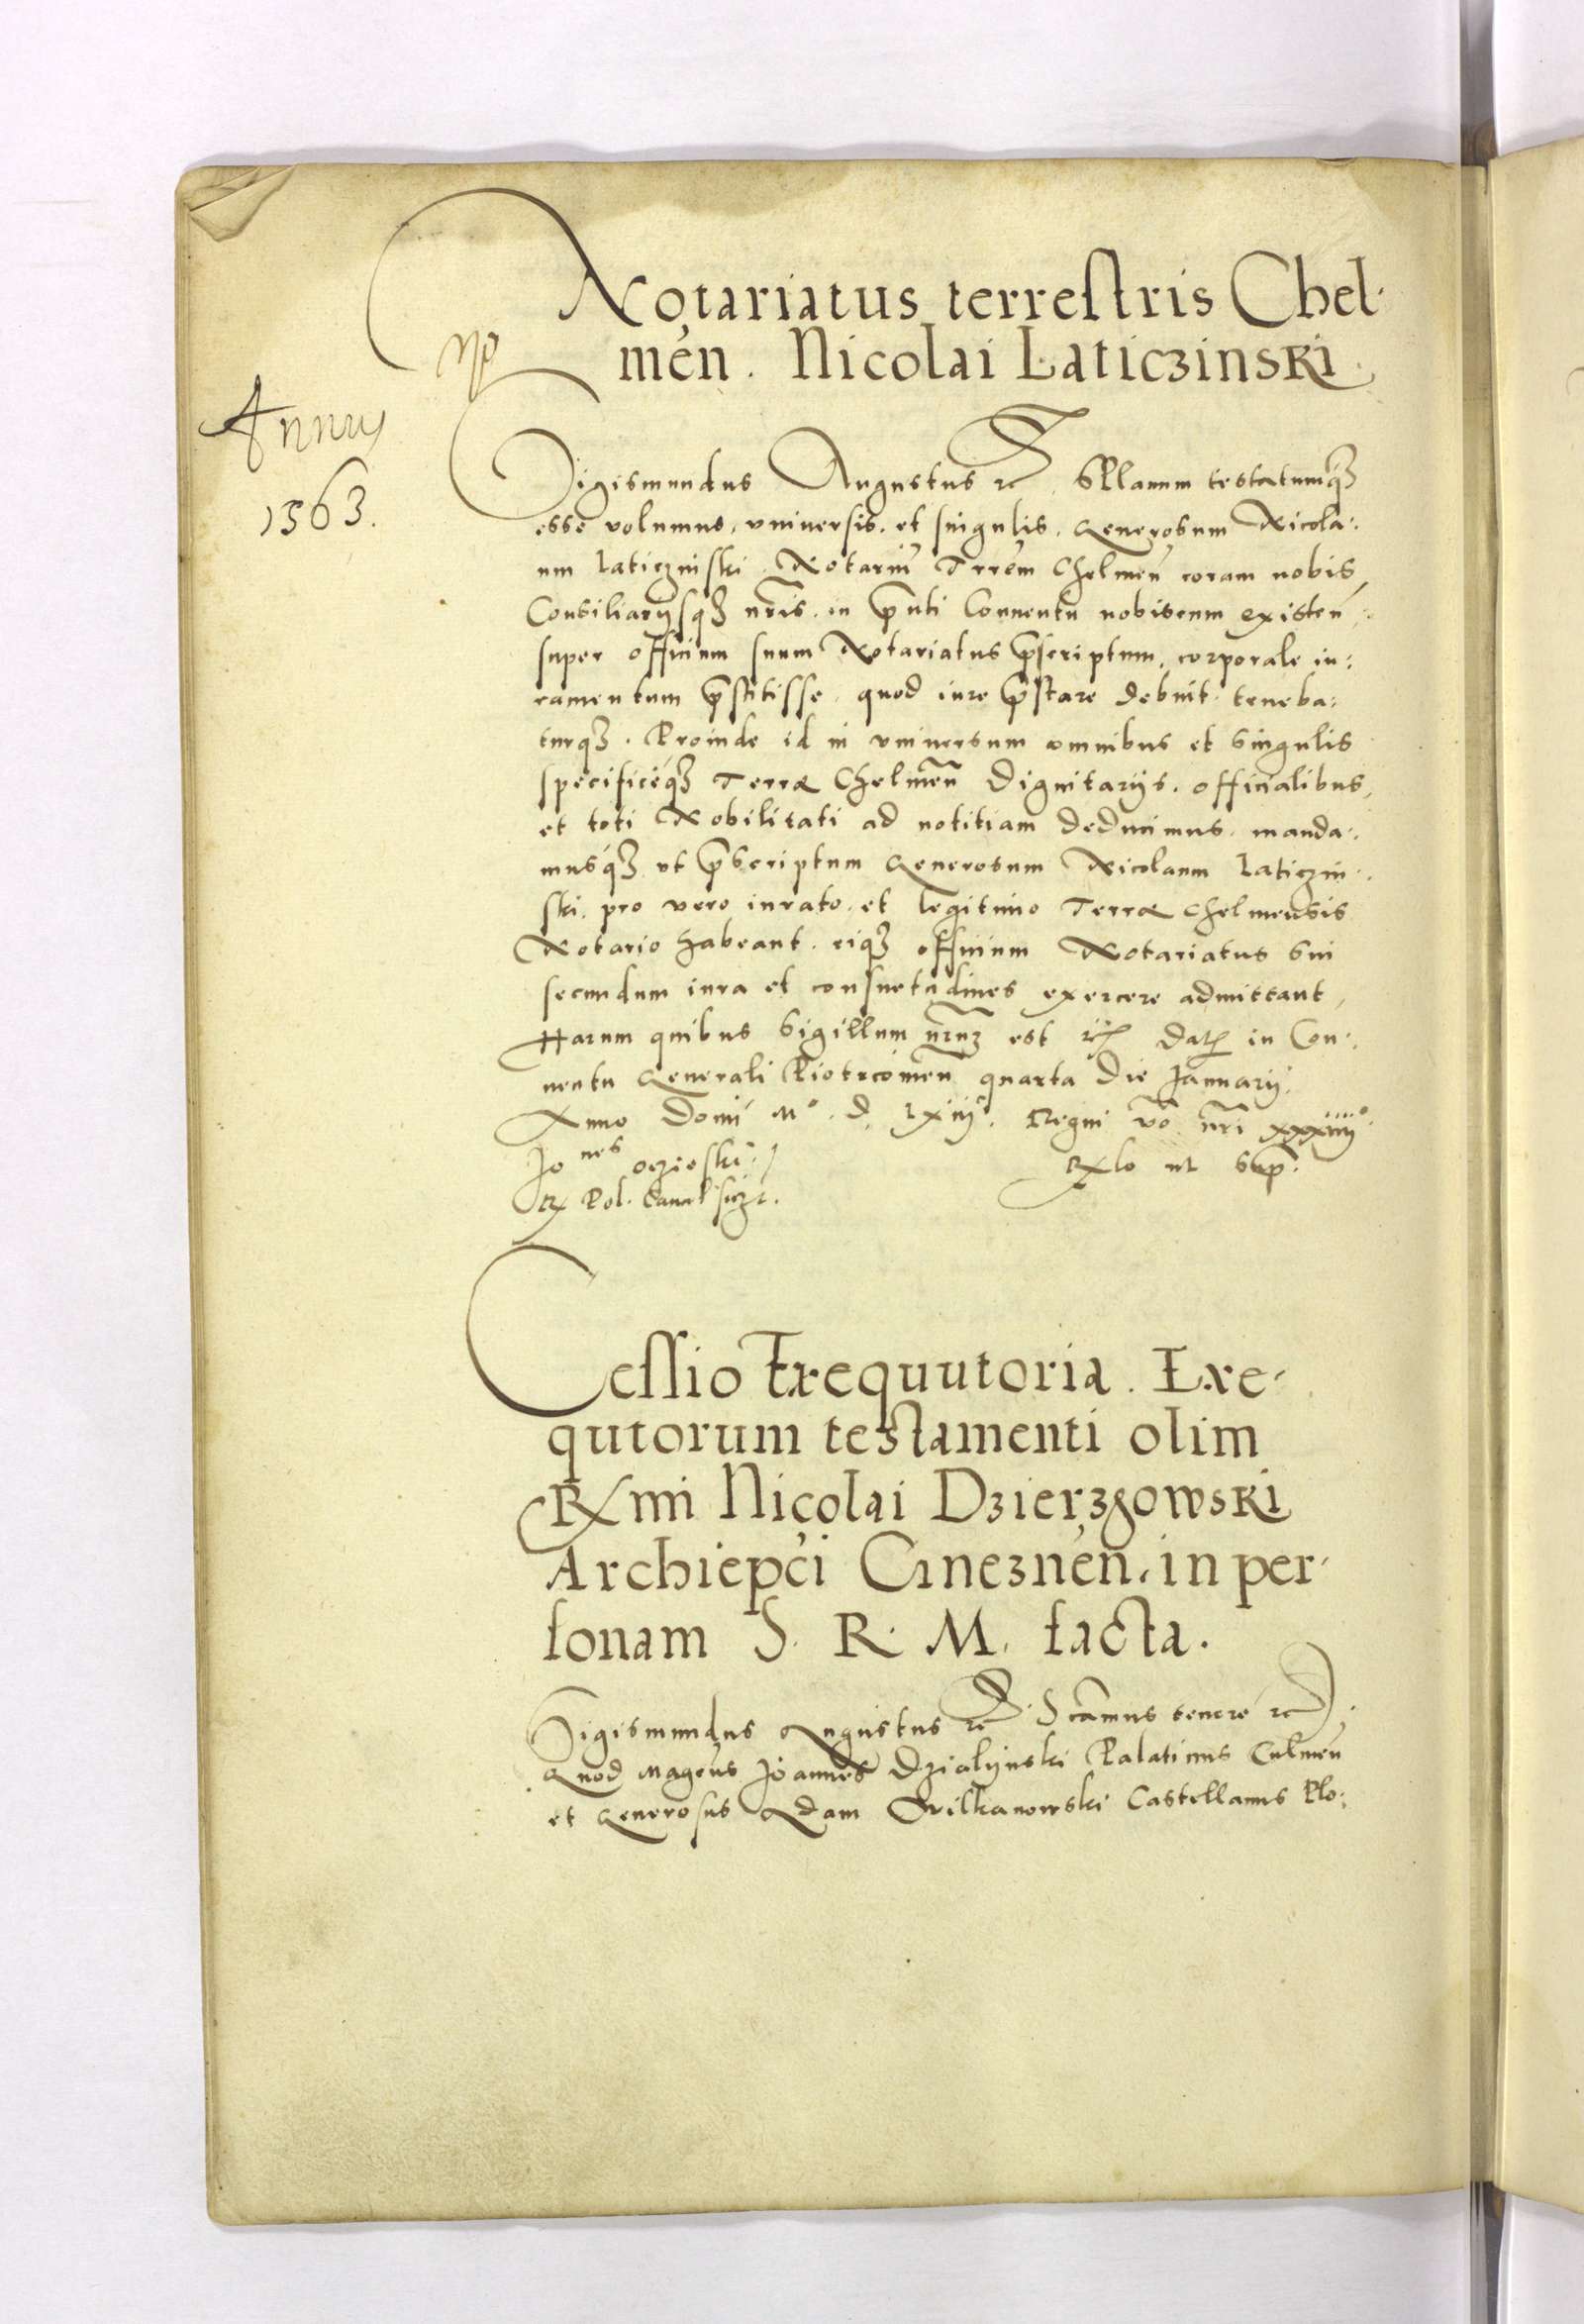 Notariatus terrestris Chel-
men. Nicolai Laticzinski
Annus
1563.
Sigismundus Augustus rc Planum testatumq3
esse volumus, vniuersis et singulis, Generosum Nicola:
um Laticzinski Notariu Trrem Chelmen coram nobis,
Consiliarijsq3 nris in pnti Conuentu nobiscum existen
super officium suum Notariatus pscriptum, corporale iu:
ramentum pstitisse, quod iure pstare debuit teneba:
turq3. Proinde id in vniuersum omnibus et singulis
specificeq3 Terræ Chelmen Dignitarijs, officialibus,
et toti Nobilitati ad notitiam deducimus, manda:
musq3 vt pscriptum Generosum Nicolaum Laticzin:
ski, pro vero iurato et legitimo Terræ Chelmensis
Notario habeant, eiq3 officium Notariatus sui
secundum iura et consuetudines exercere admittant,
Harum quibus Sigillum nrum est Dat in Con:
uentu Generali Piotrcouien quarta die Januarij
Anno Domi Mº. d. lxiijº. Regni vo nri xxxiiijº
Jones oczieski
Rx Pol. Cancel
Rxlo ut sup.
Cessio Exequutoria. Exe-
qutorum testamenti olim
Rxmi Nicolai Dzierzgowski
Archiepci Gneznen. in per-
sonam S. R. M. facta.
Sigismundus Augustus rc Scamus tenore rc
Quod Magcus Joannes Dzialijnski Palatinus Culmen
et Generosus Adam Wilkanowski Castellanus Plo: